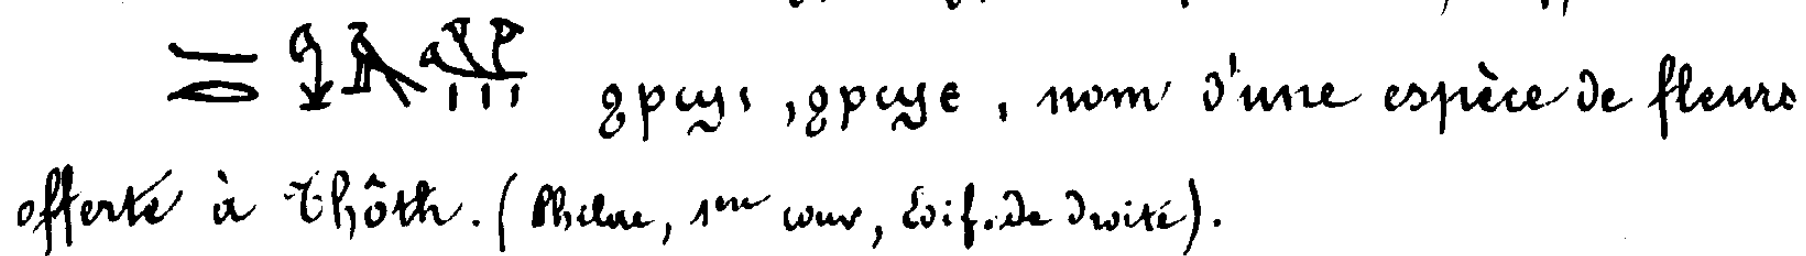 ϩⲣϣⲓ, ϩⲣϣⲉ, nom d'une espèce de fleurs
offerte à Thôth. (Philae, 1ère cour, Édif. de droite).